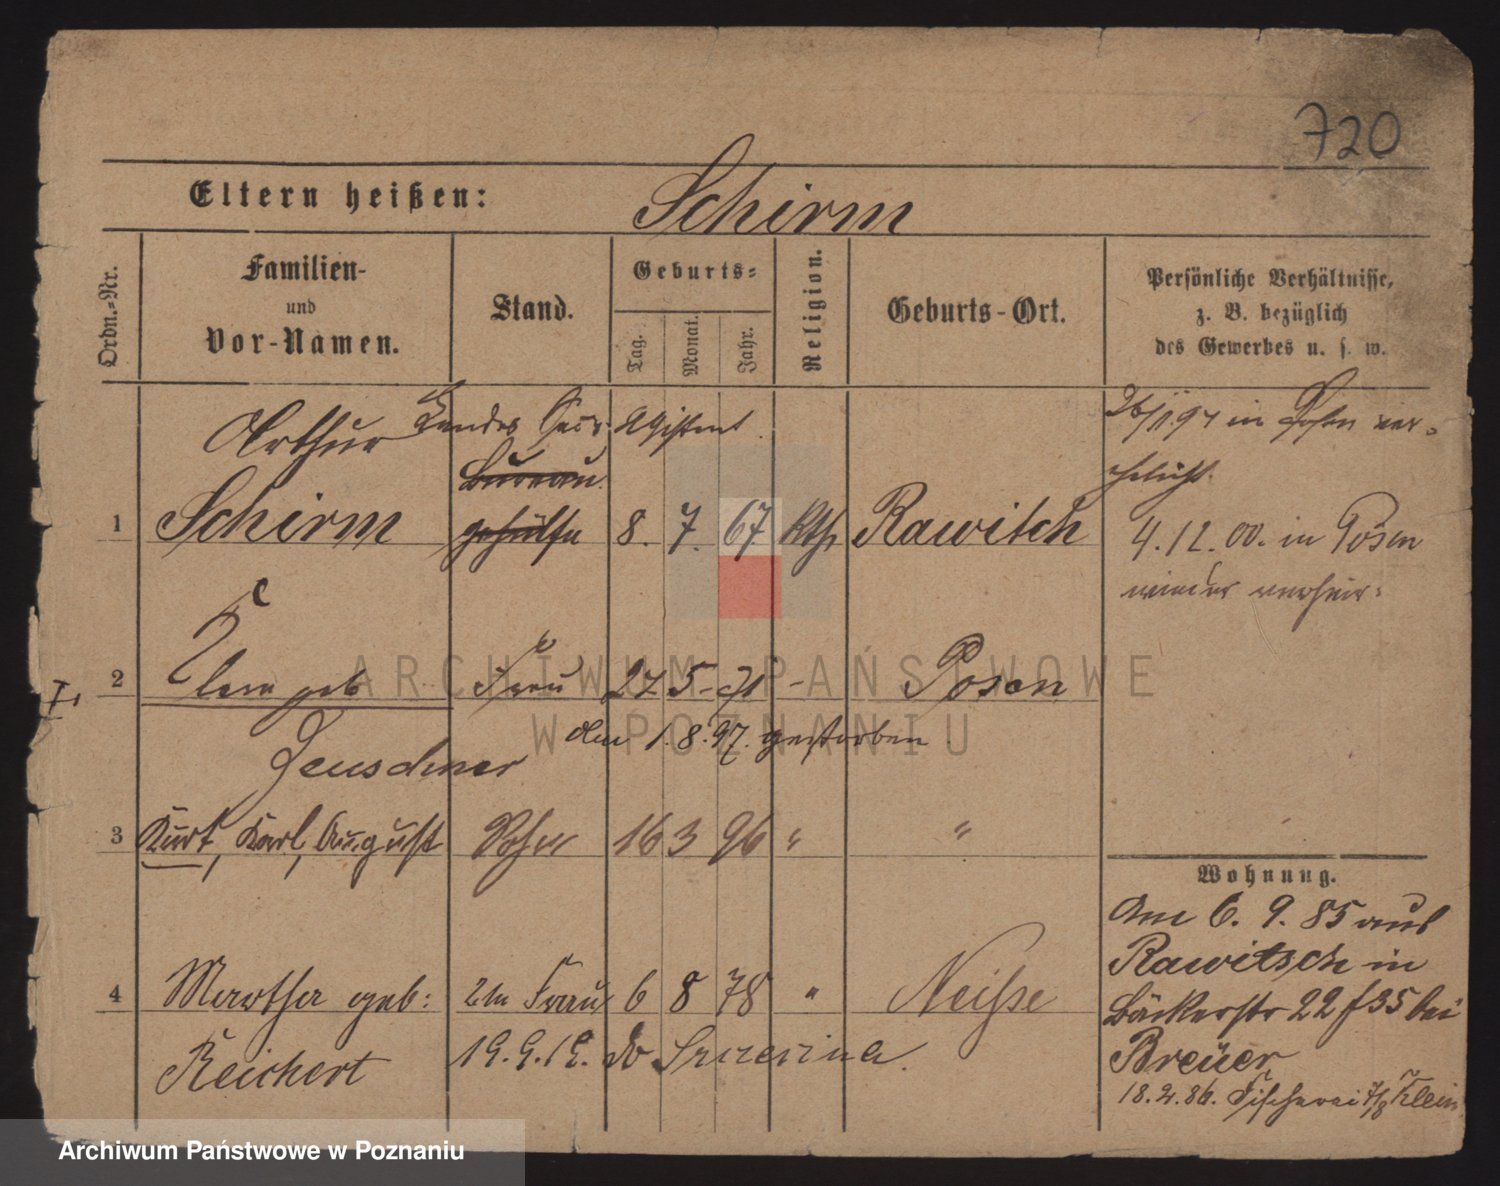 720
Eltern heißen: Schirm
Ordn.-Nr.
Familien-
und
Vor-Namen.
Stand.
Geburts-
Tag.
Monat.
Jahr.
Religion.
Geburts-Ort.
Persönliche Verhältnisse,
z. B. bezüglich
des Gewerbes u. s. w.
Arthur Landes Assistent
Bureau
1 Schirm gehülfe 8. 7. 67 kth Rawitch
in Posen ver-
ehelicht.
4. 12. 00. in Posen
wieder verheir:
2 geb Frau 27 5 71 - Posen
I.
den 1. 8. 97. gestorben
3 Kurt, Karl, August Sohn 16 3 96 " "
4 Martha geb: 2te Frau 6 8 78 " Neisse
Reichert
19. 9. 19.
Wohnung.
Am 6. 9. 85 aus
Rawitsch in
Bäckerstr 22 f 35 bei
Breuer
18. 2. 86. Fischerei 7/8 Klein
ARCHIWUM PAŃSTWOWE
W POZNANIU
Archiwum Państwowe w Poznaniu